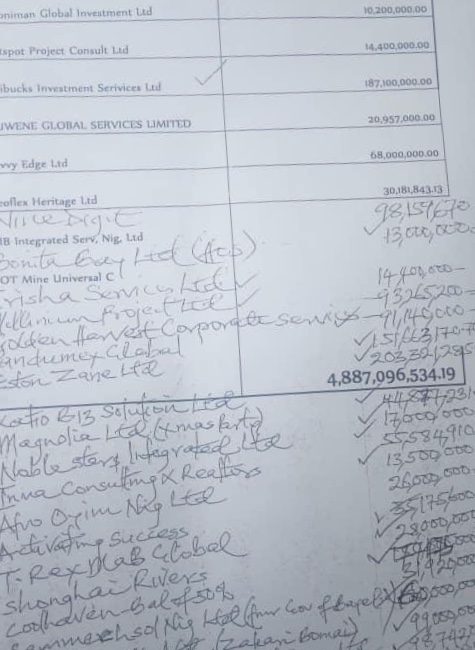 oniman Global Investment Ltd 10,200,000.00
tspot Project Consult Ltd 14,400,000.00
ibucks Investment Serivices Ltd 187,100,000.00
JWENE GLOBAL SERVICES LIMITED 20,957,000.00
vvy Edge Ltd 68,000,000.00
eoflex Heritage Ltd 30,181,843.13
98,159,670
IB Integrated Serv, Nig, Ltd 13,000,000
Bonita Bay Ltd
OT Mine Universal C 14,400,000
risha Services Ltd 93,265,200
Millinium Project Ltd 91,140,000
Golden Harvest Corporate services 151,663,170
anchumex Global 203,321,285
eston Zane Ltd
4,887,096,534.19
B13 Solution Ltd
Magnolia Ltd (xmas Party) 17,000,000
Noble stars Integrated Ltd 55,584,910
Inna Consulting & Realtors 13,500,000
Afro Oyim Nig Ltd 26,000,000
Activating success 35,175,600
T-Rex MaB Global 28,000,000
Shonghai Rivers
Coolhaven Bal of 50% 31,920,000
Nig Ltd 99,000,000
(Zakari Bomai)